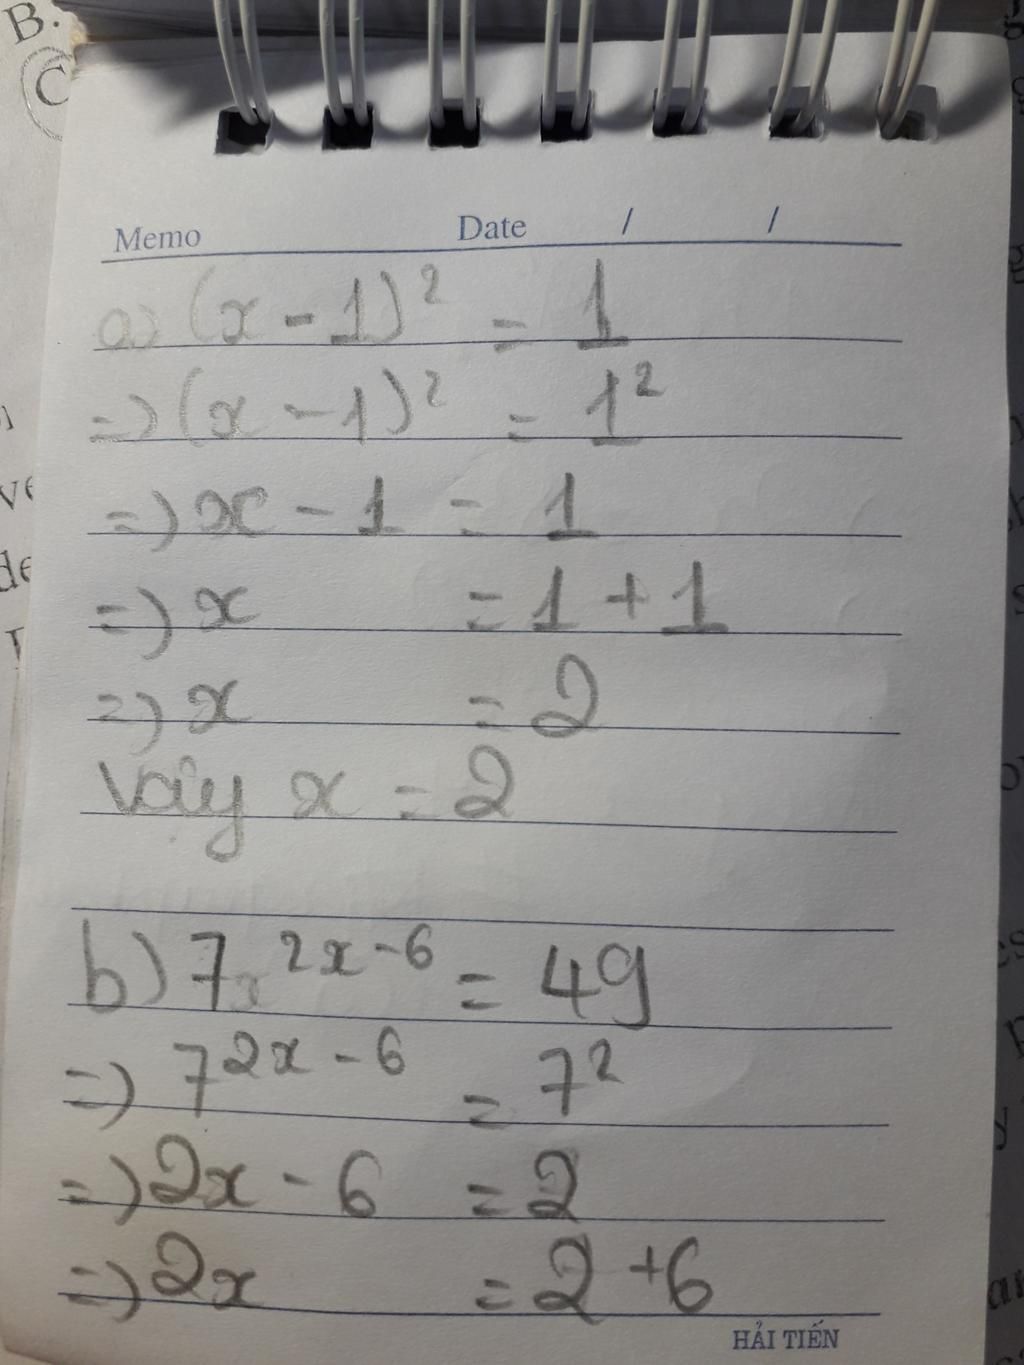 B.
C
Memo Date / /
a) (x - 1)² = 1
=) (x - 1)² = 1²
=) x - 1 = 1
=) x = 1 + 1
=) x = 2
Vậy x = 2
b) 7²ˣ⁻⁶ = 49
=) 7²ˣ⁻⁶ = 7²
=) 2x - 6 = 2
=) 2x = 2 + 6
HẢI TIẾN